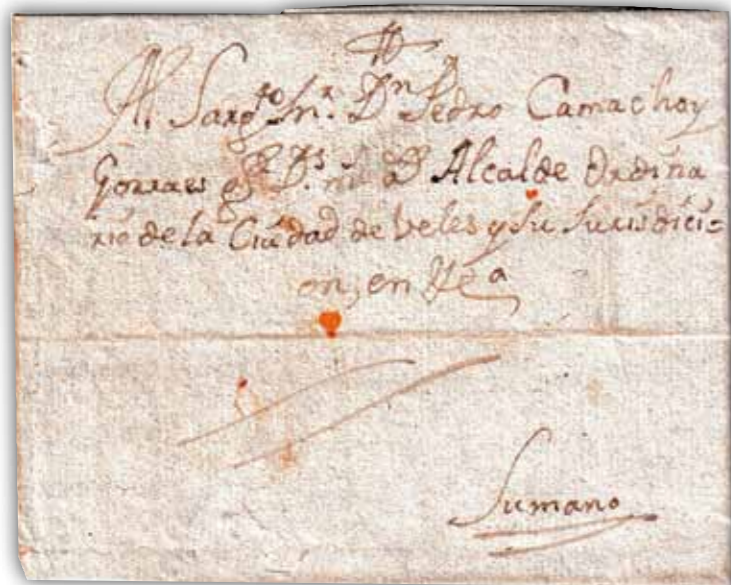 Al Sarg.to Sn.r Dn Pedro Camacho y
g.e D.s Alcalde Ordina
rio de la Ciudad de Veles y su Jurisdici=
on, en
Sumano